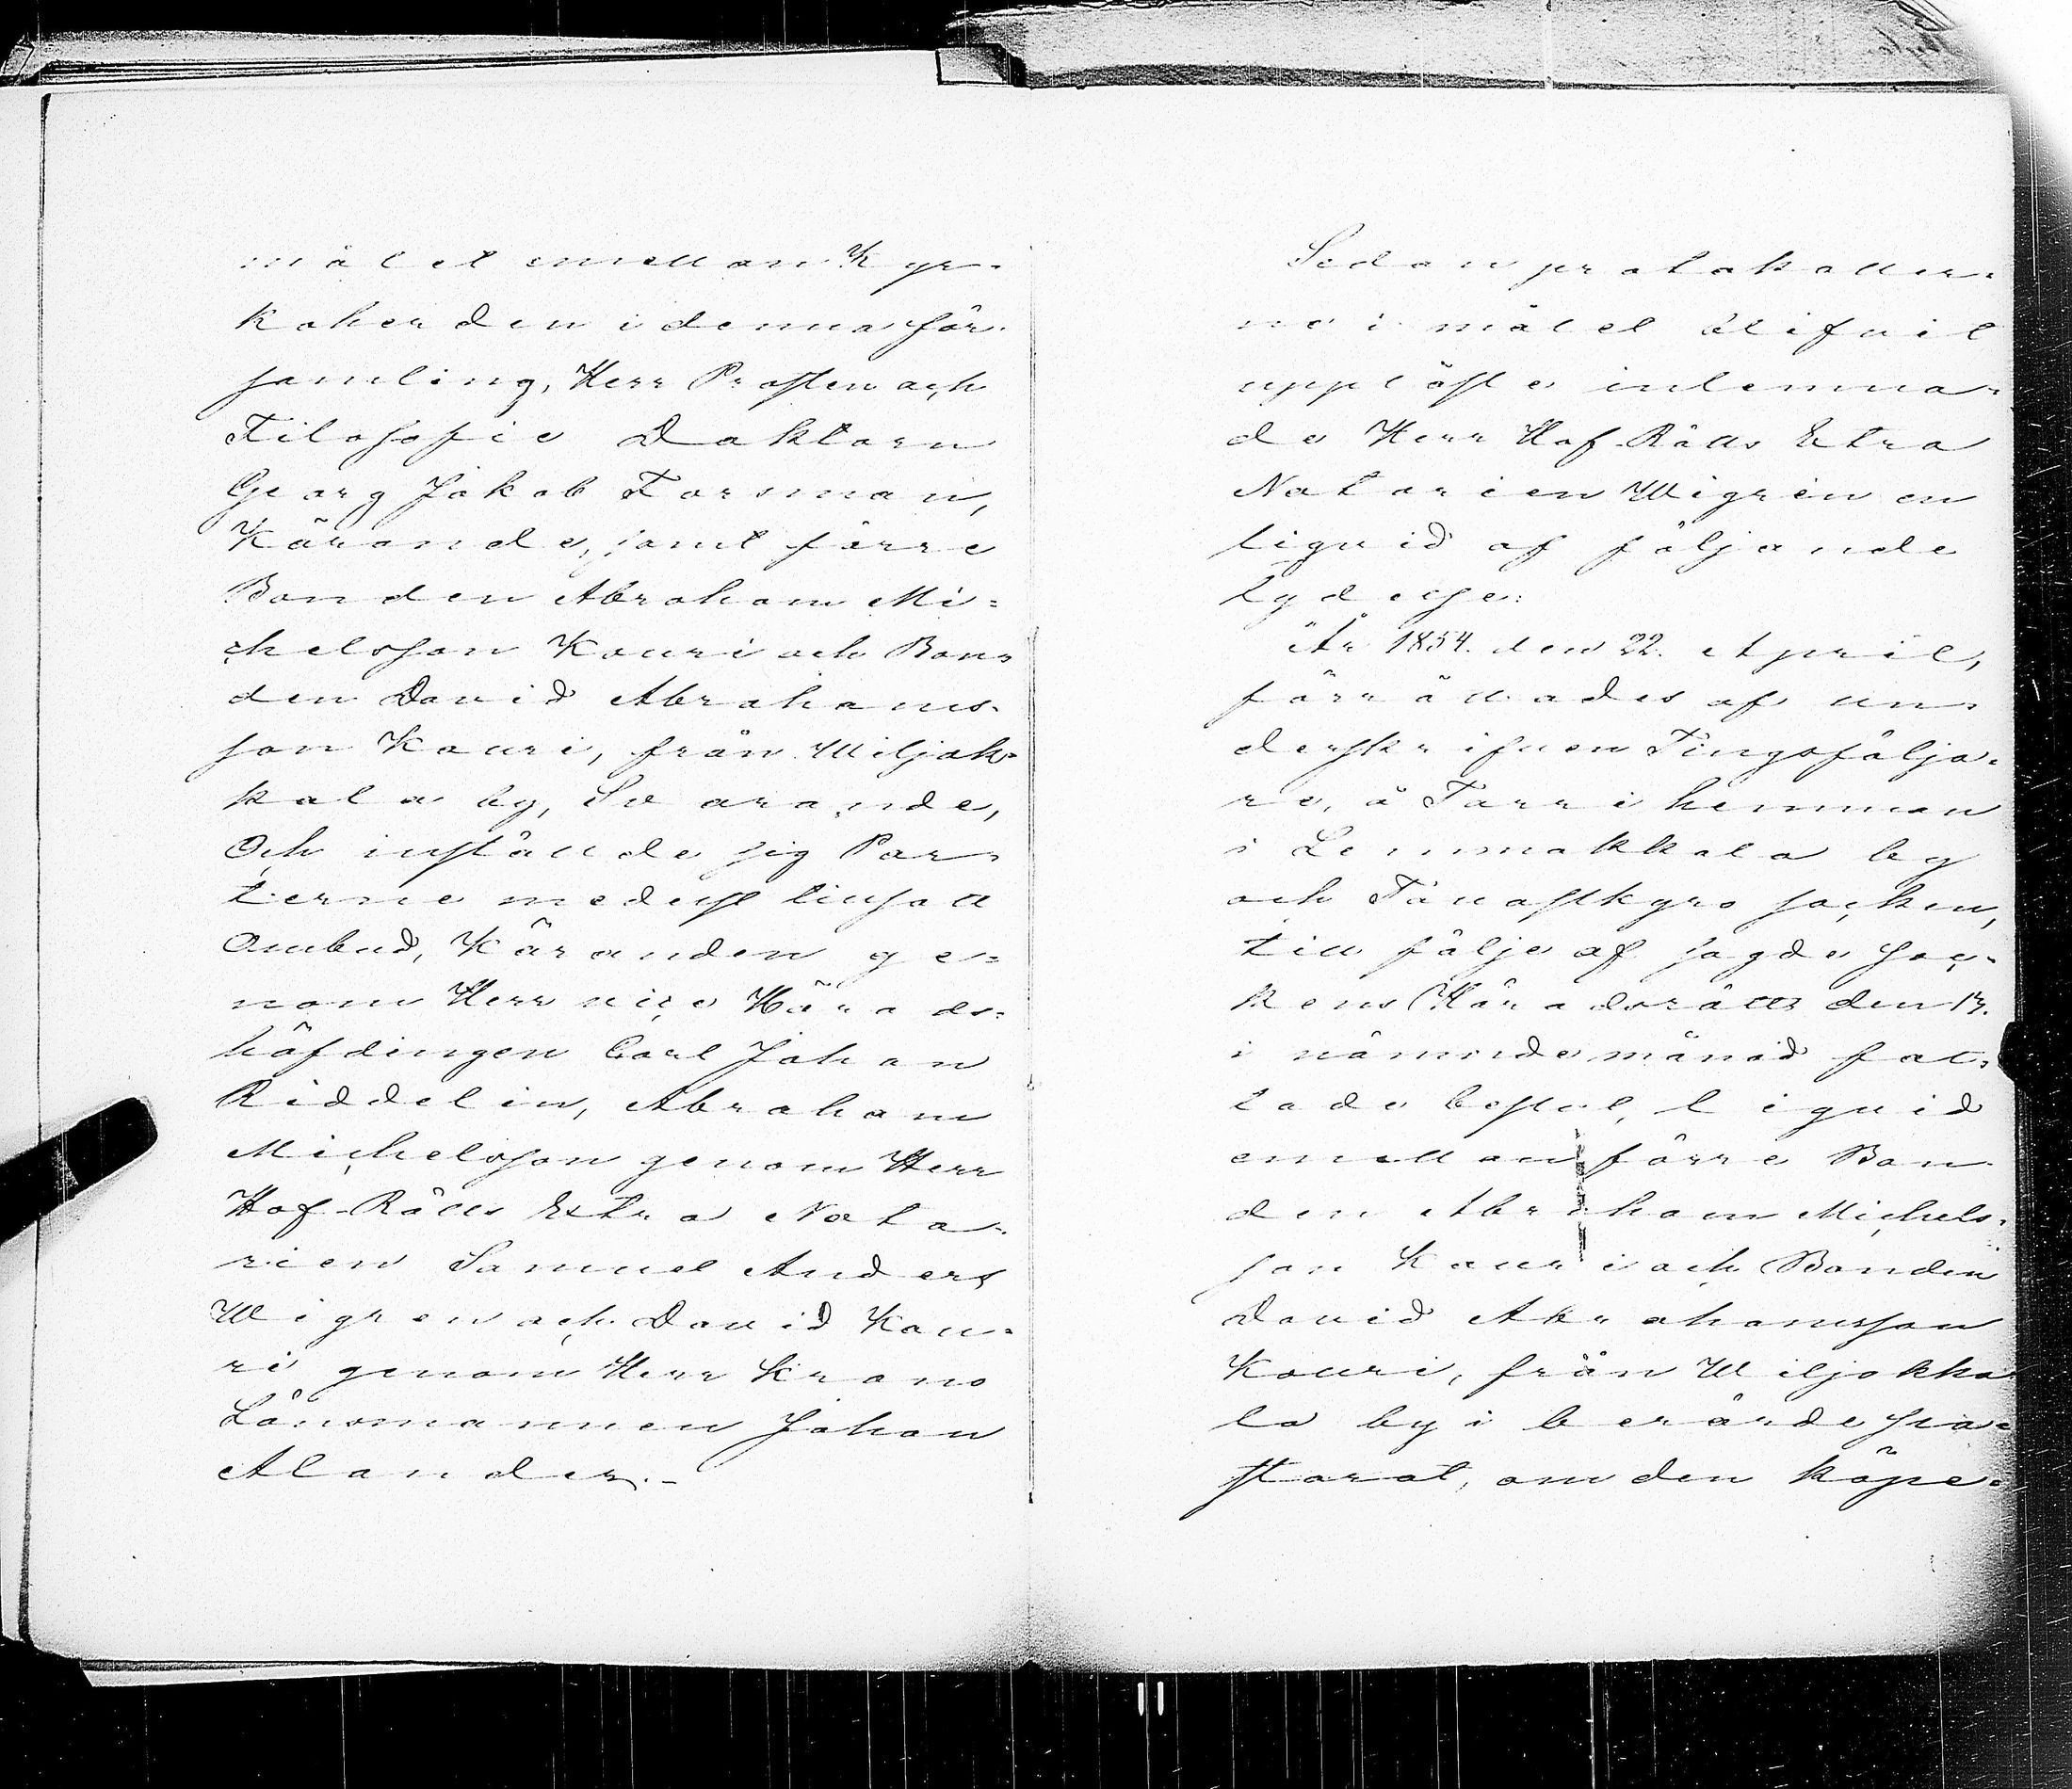 målet emellan Kyr-
koherden i denna för-
samling, Herr Prosten och
Filosofie Doktorn
Georg Jakob Forsman,
Kärande, samt förre
Bonden Abraham Mi=
chelsson Kouri och Bon=
den David Abrahams-
son Kouri, från Wiljak-
kala by, Svarande,
Och inställde sig Par=
terne medelst lillsatt
Ombud, Käranden ge=
nom Herr vice Härads=
höfdingen Carl Johan
Riddelin, Abraham
Michelsson genom Herr
Hof-Rätts Extra Nota-
rien Samuel Anders
Wigren och David Kou-
ri genom Herr Krono
Länsmannen Johan
Alander.-
Sedan protokoller-
ne i målet blifvit
upplöste inlemna-
de Herr Hof-Rätts Extra
Notarien Wigren en
liquid af följande
lydelse:
År 1854. den 22. April,
förrättades af un-
derskrifven Tingsfölja-
re, å Tarri hemman
i Lemmakkala by
och Tavastkyro socken,
till följe af sagde Soc-
kens Häradsrätts den 17.
i nämnde månad fat=
tade beslut, liquid
emellan förre Bon-
den Abraham Michels-
son Kouri och Bonden
David Abrahamsson
Kouri, från Wiljakka
la by i berörde pa=
storat, om den köpe-